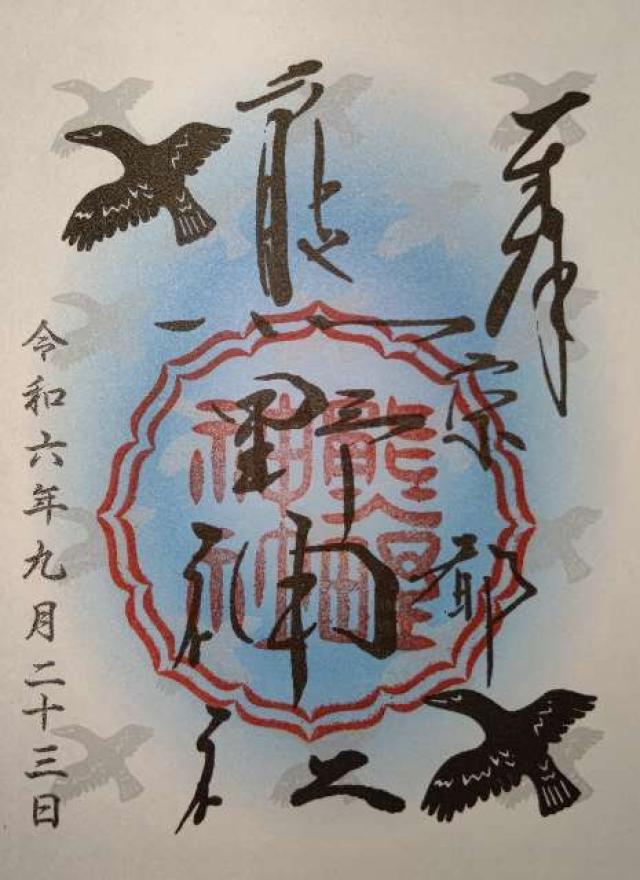 奉拝
京都
熊野神社
熊野
神社
令和六年九月二十三日